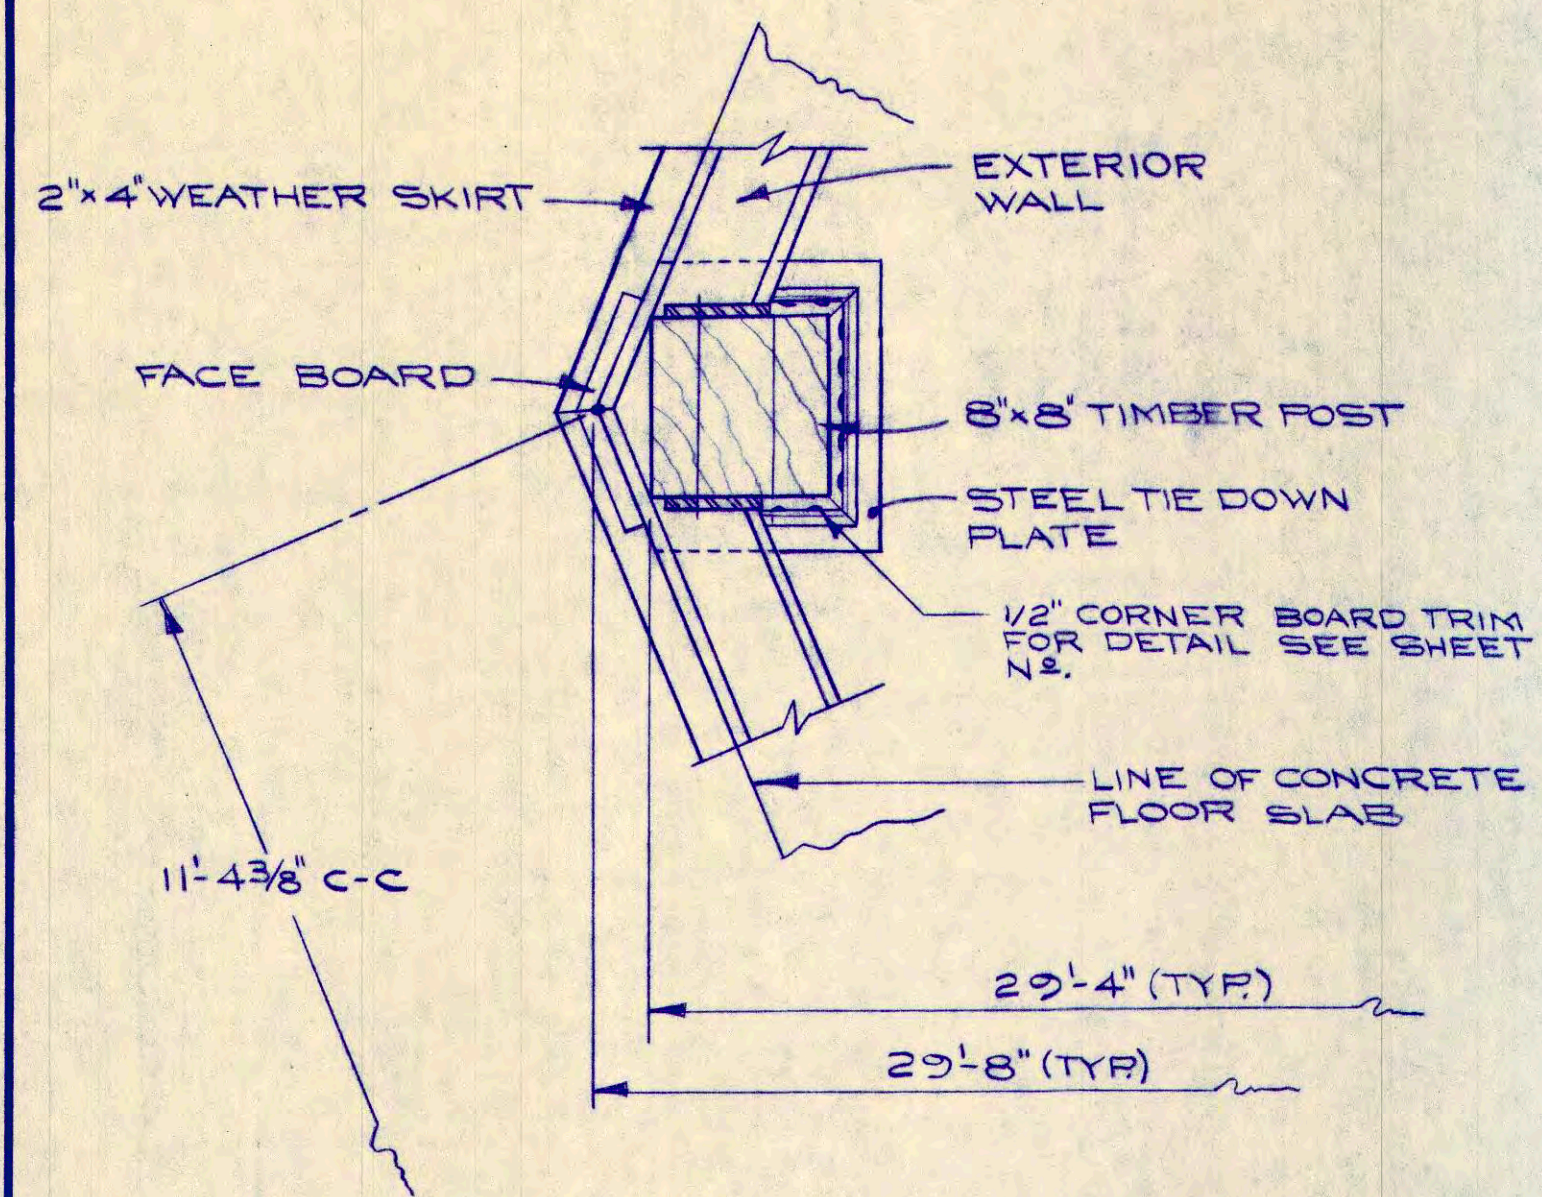 EXTERIOR
WALL
2"x4" WEATHER SKIRT
FACE BOARD
8"x8" TIMBER POST
STEEL TIE DOWN
PLATE
1/2" CORNER BOARD TRIM
FOR DETAIL SEE SHEET
Nº.
LINE OF CONCRETE
FLOOR SLAB
11'-4 3/8" C-C
29'-4" (TYP.)
29'-8" (TYP.)